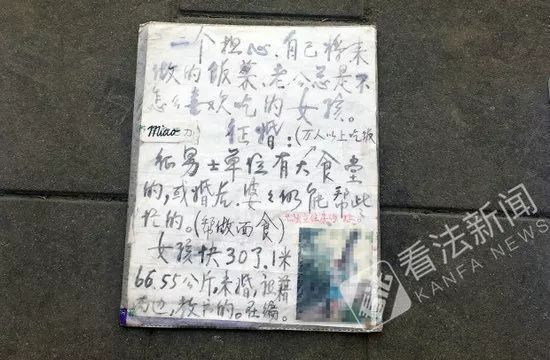 一个担心.自己将来
做的饭菜、老公总是不
怎么喜欢吃的女孩。
miao
征婚：(万人以上吃饭
征男士单位有大食堂
的,或婚后.婆婆仍能帮此
忙的。(帮做面食)
女孩快30了.1米
66.55公斤,未婚,祖籍
的.在编。
看法新闻
KANFA NEWS